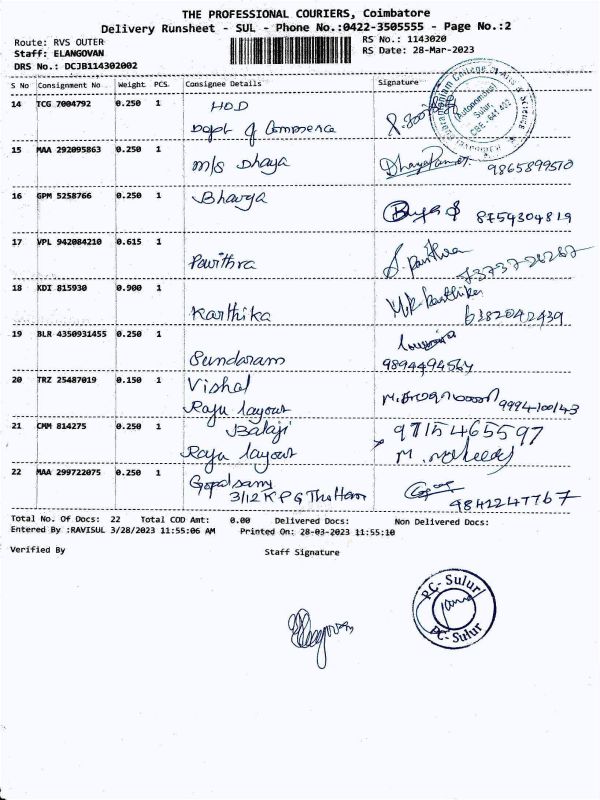 THE PROFESSIONAL COURIERS, Coimbatore
Delivery Runsheet - SUL - Phone No.:0422-3505555 - Page No.:2
Route: RVS OUTER
RS No.: 1143020
Staff: ELANGOVAN
RS Date: 28-Mar-2023
DRS No.: DCJB114302002
S No Consignment No Weight PCS Consignee Details Signature
14 TCG 7004792 0.250 1 HOD
Dept of Commerce
(Autonomous)
Sulur,
CBE - 641 402
15 MAA 292095863 0.250 1 M/s Dhaya 9865899570
16 GPM 5258766 0.250 1 Bhavya 8754304819
17 VPL 942084210 0.615 1 Pavithra S. Pavithra
18 KDI 815930 0.900 1 Karthika Karthika 6382042439
19 BLR 4350931455 0.250 1 Sundaram 9894494564
20 TRZ 25487019 0.150 1 Vishal
Raju layout 9994100143
21 CMM 814275 0.250 1 Balaji 9715465597
Raju layout
22 MAA 299722075 0.250 1 Gopalsamy
3/12 K P G Thottam 9842247767
Total No. Of Docs: 22 Total COD Amt: 0.00 Delivered Docs: Non Delivered Docs:
Entered By :RAVISUL 3/28/2023 11:55:06 AM Printed On: 28-03-2023 11:55:10
Verified By Staff Signature
PC-Sulur
Elangovan
PC-Sulur